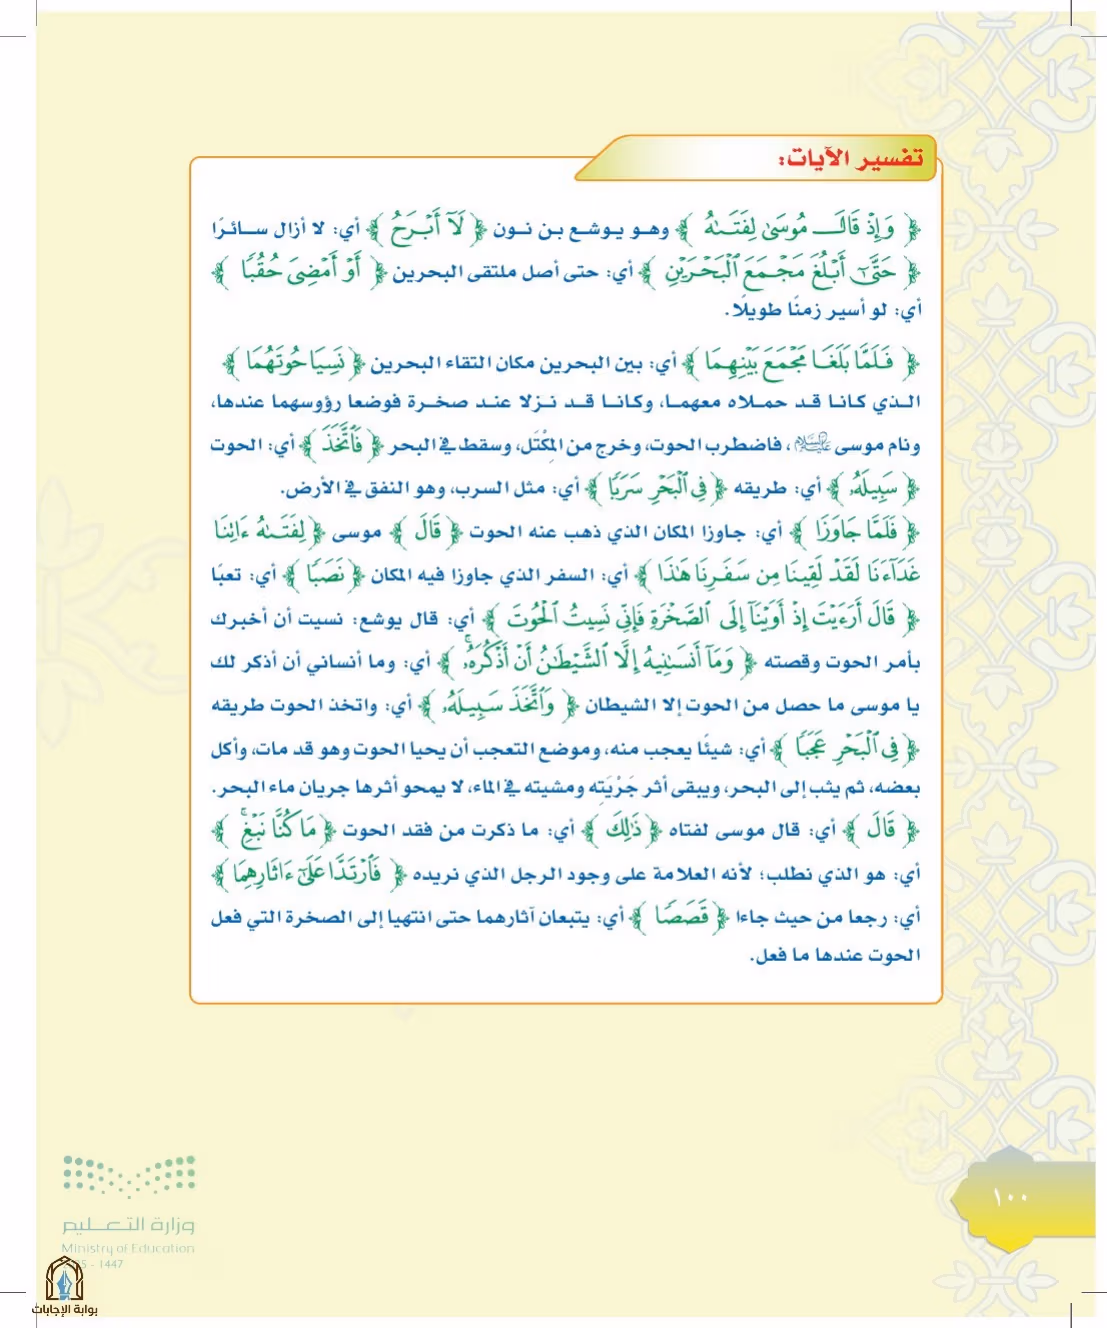 تفسير الآيات:
﴿ وَإِذْ قَالَ مُوسَىٰ لِفَتَىٰهُ ﴾ وهـو يـوشـع بـن نـون ﴿ لَآ أَبْرَحُ ﴾ أي: لا أزال سـائـرًا
﴿ حَتَّىٰٓ أَبْلُغَ مَجْمَعَ ٱلْبَحْرَيْنِ ﴾ أي: حتى أصل ملتقى البحرين ﴿ أَوْ أَمْضِىَ حُقُبًا ﴾
أي: لو أسير زمنًا طويلًا.
﴿ فَلَمَّا بَلَغَا مَجْمَعَ بَيْنِهِمَا ﴾ أي: بين البحرين مكان التقاء البحرين ﴿ نَسِيَا حُوتَهُمَا ﴾
الـذي كـانـا قـد حمـلاه معهمـا، وكـانـا قـد نـزلا عنـد صخـرة فوضعا رؤوسهما عندها،
ونام موسى عليه السلام، فاضطرب الحوت، وخرج من المِكْتَل، وسقط في البحر ﴿ فَٱتَّخَذَ ﴾ أي: الحوت
﴿ سَبِيلَهُۥ ﴾ أي: طريقه ﴿ فِى ٱلْبَحْرِ سَرَبًا ﴾ أي: مثل السرب، وهو النفق في الأرض.
﴿ فَلَمَّا جَاوَزَا ﴾ أي: جاوزا المكان الذي ذهب عنه الحوت ﴿ قَالَ ﴾ موسى ﴿ لِفَتَىٰهُ ءَاتِنَا
غَدَآءَنَا لَقَدْ لَقِينَا مِن سَفَرِنَا هَٰذَا ﴾ أي: السفر الذي جاوزا فيه المكان ﴿ نَصَبًا ﴾ أي: تعبًا
﴿ قَالَ أَرَءَيْتَ إِذْ أَوَيْنَآ إِلَى ٱلصَّخْرَةِ فَإِنِّى نَسِيتُ ٱلْحُوتَ ﴾ أي: قال يوشع: نسيت أن أخبرك
بأمر الحوت وقصته ﴿ وَمَآ أَنسَىٰنِيهُ إِلَّا ٱلشَّيْطَٰنُ أَنْ أَذْكُرَهُۥ ۚ ﴾ أي: وما أنساني أن أذكر لك
يا موسى ما حصل من الحوت إلا الشيطان ﴿ وَٱتَّخَذَ سَبِيلَهُۥ ﴾ أي: واتخذ الحوت طريقه
﴿ فِى ٱلْبَحْرِ عَجَبًا ﴾ أي: شيئًا يعجب منه، وموضع التعجب أن يحيا الحوت وهو قد مات، وأكل
بعضه، ثم يثب إلى البحر، ويبقى أثر جَرْيَتِه ومشيته في الماء، لا يمحو أثرها جريان ماء البحر.
﴿ قَالَ ﴾ أي: قال موسى لفتاه ﴿ ذَٰلِكَ ﴾ أي: ما ذكرت من فقد الحوت ﴿ مَا كُنَّا نَبْغِ ۚ ﴾
أي: هو الذي نطلب؛ لأنه العلامة على وجود الرجل الذي نريده ﴿ فَٱرْتَدَّا عَلَىٰٓ ءَاثَارِهِمَا ﴾
أي: رجعا من حيث جاءا ﴿ قَصَصًا ﴾ أي: يتبعان آثارهما حتى انتهيا إلى الصخرة التي فعل
الحوت عندها ما فعل.
١٠٠
وزارة التعـليم
Ministry of Education
5 - 1447
بوابة الإجابات